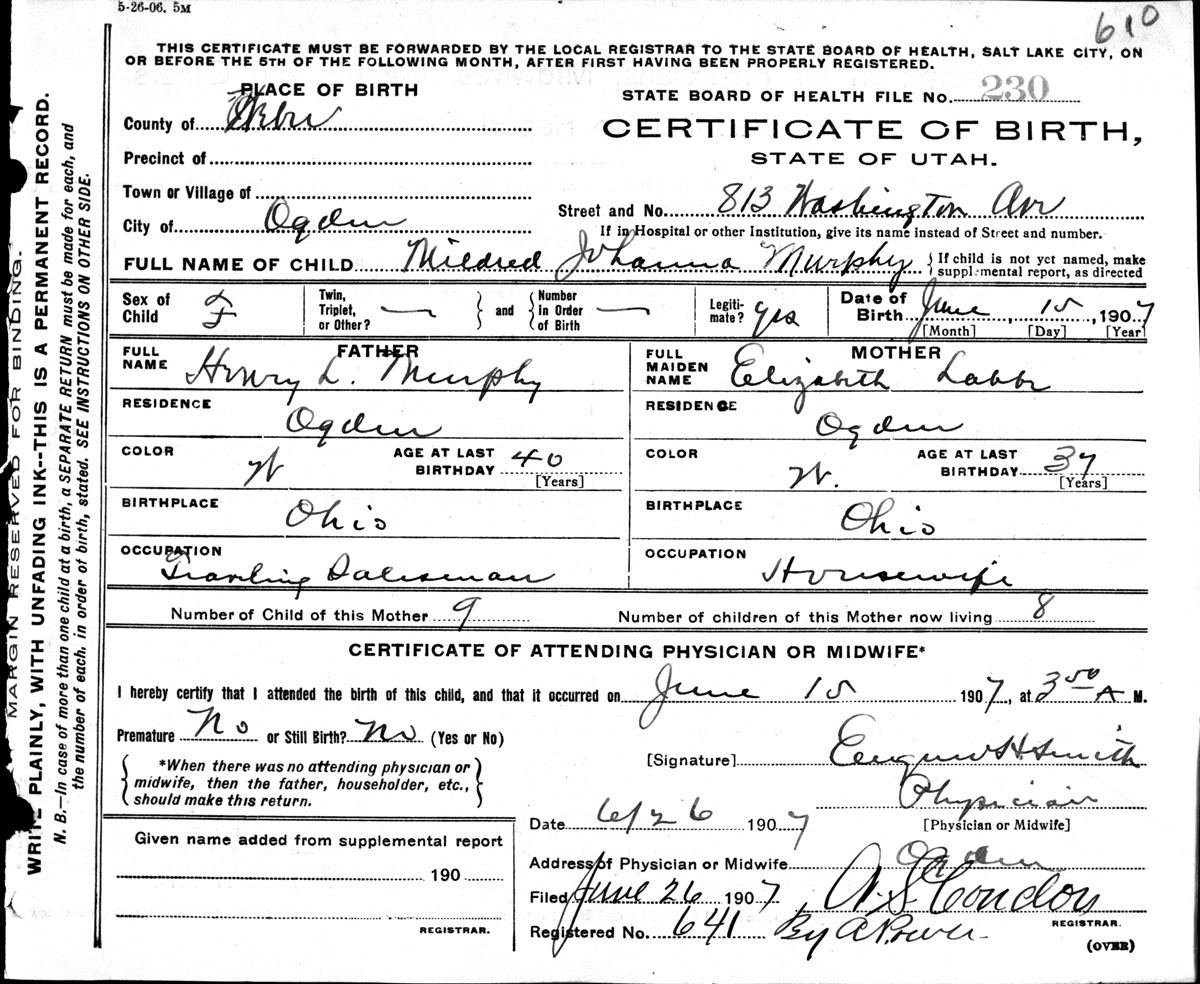 5-26-06. 5M
610
THIS CERTIFICATE MUST BE FORWARDED BY THE LOCAL REGISTRAR TO THE STATE BOARD OF HEALTH, SALT LAKE CITY, ON
OR BEFORE THE 5TH OF THE FOLLOWING MONTH, AFTER FIRST HAVING BEEN PROPERLY REGISTERED.
PLACE OF BIRTH
STATE BOARD OF HEALTH FILE No. 230
County of Weber
CERTIFICATE OF BIRTH,
Precinct of
STATE OF UTAH.
Town or Village of
Street and No. 813 Washington Ave
City of Ogden
If in Hospital or other Institution, give its name instead of Street and number.
FULL NAME OF CHILD Mildred Johanna Murphy { If child is not yet named, make supplemental report, as directed
Sex of Child F
Twin, Triplet, or Other? — } and { Number in Order of Birth —
Legitimate? yes
Date of Birth June 15, 1907
[Month] [Day] [Year]
FATHER
FULL NAME Henry L. Murphy
RESIDENCE
Ogden
COLOR W AGE AT LAST BIRTHDAY 40
[Years]
BIRTHPLACE
Ohio
OCCUPATION
Traveling Salesman
MOTHER
FULL MAIDEN NAME Elizabeth Labbe
RESIDENCE
Ogden
COLOR W. AGE AT LAST BIRTHDAY 37
[Years]
BIRTHPLACE
Ohio
OCCUPATION
Housewife
Number of Child of this Mother 9 Number of children of this Mother now living 8
CERTIFICATE OF ATTENDING PHYSICIAN OR MIDWIFE*
I hereby certify that I attended the birth of this child, and that it occurred on June 15 1907, at 3 50 A M.
Premature No or Still Birth? No (Yes or No)
*When there was no attending physician or
midwife, then the father, householder, etc.,
should make this return.
[Signature] H. Smith
Physician
[Physician or Midwife]
Date 6/26 1907
Address of Physician or Midwife Ogden
Filed June 26 1907 A. S. Condon
REGISTRAR.
Registered No. 641 By A. Power
(OVER)
Given name added from supplemental report
190
REGISTRAR.
MARGIN RESERVED FOR BINDING.
WRITE PLAINLY, WITH UNFADING INK--THIS IS A PERMANENT RECORD.
N. B.—In case of more than one child at a birth, a SEPARATE RETURN must be made for each, and
the number of each, in order of birth, stated. SEE INSTRUCTIONS ON OTHER SIDE.